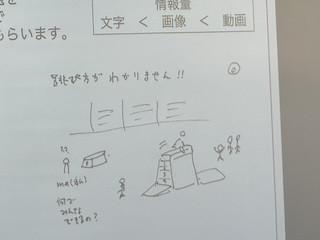 情報量
文字 < 画像 < 動画
もらいます。
跳び方がわかりません!!
??
me(ぼく)
何で
みんな
できるの?